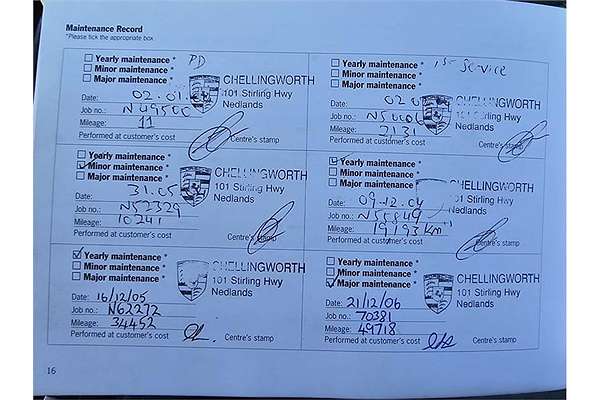 Maintenance Record
*Please tick the appropriate box
Yearly maintenance * PD
Minor maintenance *
Major maintenance * CHELLINGWORTH
Date: 02.01. 101 Stirling Hwy
Job no.: Nedlands
Mileage: 11
Performed at customer's cost Centre's stamp
Yearly maintenance * 1st Service
Minor maintenance *
Major maintenance * CHELLINGWORTH
Date: 101 Stirling Hwy
Job no.: Nedlands
Mileage: 2131
Performed at customer's cost Centre's stamp
Yearly maintenance *
Minor maintenance *
Major maintenance * CHELLINGWORTH
Date: 31.05 101 Stirling Hwy
Job no.: N52329 Nedlands
Mileage: 10241
Performed at customer's cost Centre's stamp
Yearly maintenance *
Minor maintenance *
Major maintenance * CHELLINGWORTH
Date: 09.12.04 101 Stirling Hwy
Job no.: N55849 Nedlands
Mileage: 19193 km
Performed at customer's cost Centre's stamp
Yearly maintenance *
Minor maintenance * CHELLINGWORTH
Major maintenance * 101 Stirling Hwy
Date: 16/12/05 Nedlands
Job no.: N62272
Mileage: 34452
Performed at customer's cost Centre's stamp
Yearly maintenance *
Minor maintenance * CHELLINGWORTH
Major maintenance * 101 Stirling Hwy
Date: 21/12/06 Nedlands
Job no.: 70381
Mileage: 49718
Performed at customer's cost Centre's stamp
16